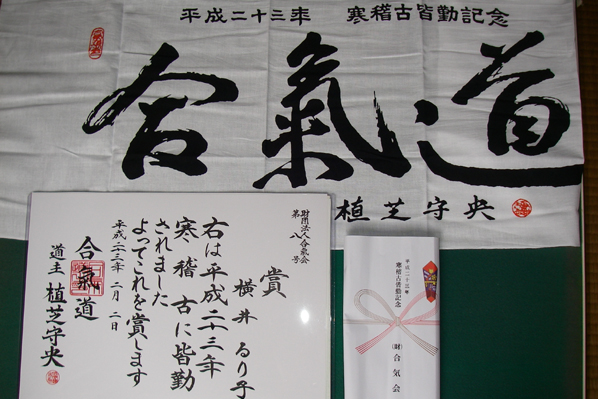 平成二十三年 寒稽古皆勤記念
合氣道
植芝守央
財団法人合氣会
第八号
賞
横井るり子
右は平成二十三年
寒稽古に皆勤
されました
よってこれを賞します
平成二三年二月二日
合氣道
道主 植芝守央
平成二十三年
寒稽古皆勤記念
(財)合気会